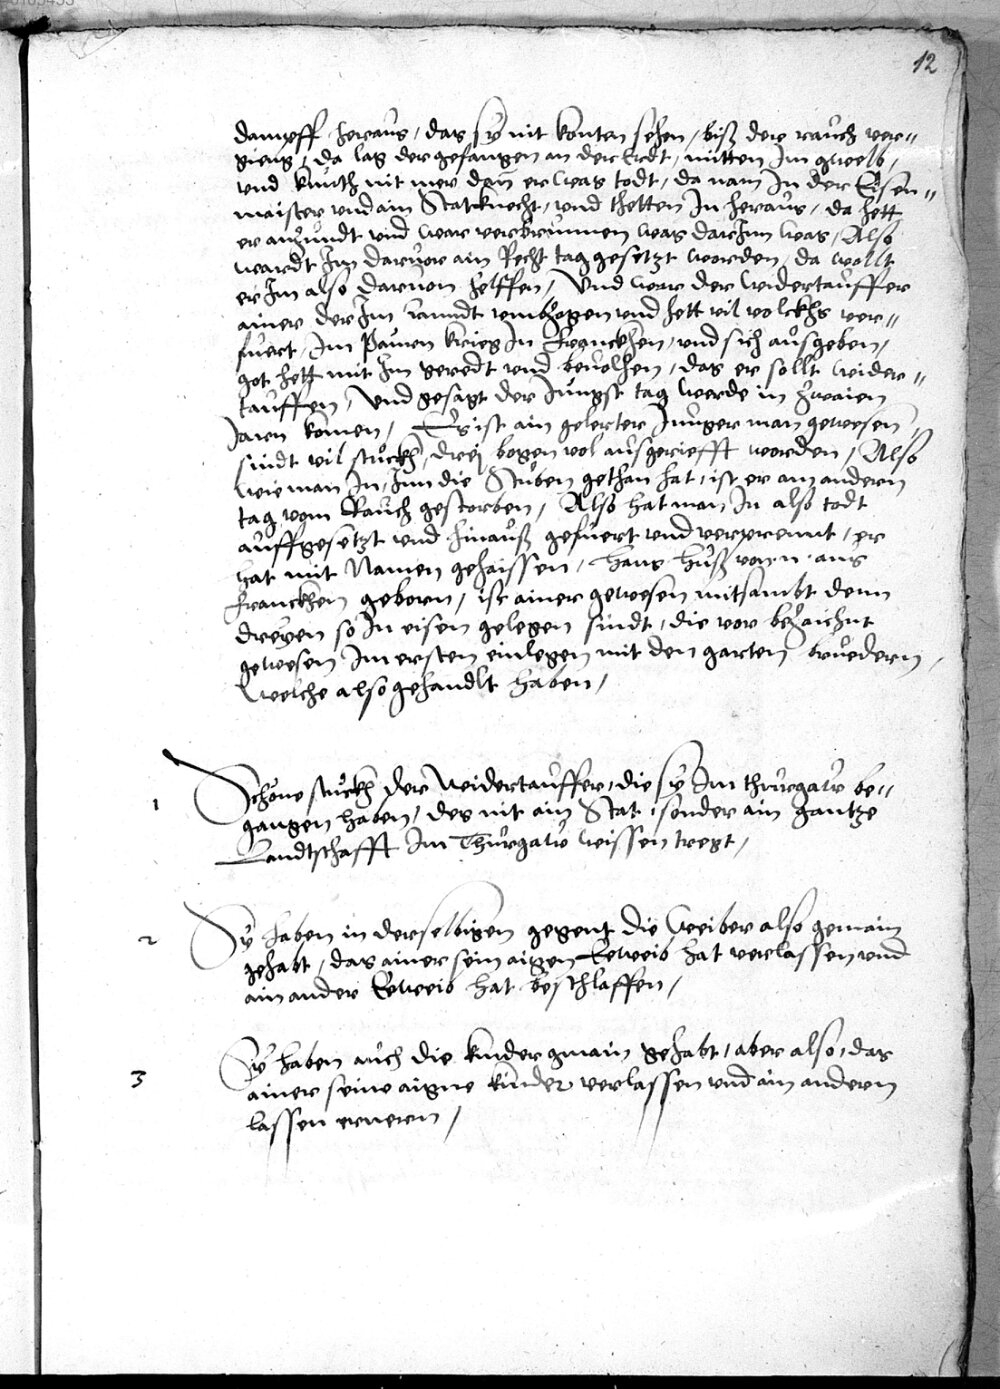 12
dampff heraus, das sy nit konten sehen, biß der rauch ver=
gieng, da lag der gefangen an der Erdt, mitten Im gwelb,
vnd kunth nit mer dan er was todt, da nam In der Eisen=
maister vnd ain Statknecht, vnd thetten In heraus, da hett
er anzundt vnd war verbrunnen was darInn was, Also
wardt Im darvor ain Recht tag gesetzt worden, da wollt
er Im also daruon helffen, Vnd war der widertauffer
ainer der Im landt vmbzogen vnd hett vil volckhs ver=
fuert, Im Pauren krieg In Franckhen, vnd sich ausgeben,
got hett mit Im geredt vnd beuolhen, das er sollt wider=
tauffen, Vnd gesagt der Jungst tag werde in zwaien
Jarn komen, Es ist ain gelerter Junger man gewesen,
sindt vil stuckh, drej bogen vol ausgeriefft worden, Also
wie man In, Inn die Stuben gethan hat, ist er am andern
tag vom Rauch gestorben, Also hat man In also todt
auffgesetzt vnd hinauß gefuert vnd verprennt, er
hat mit Namen gehaissen, Hans Hutt von aus
Franckhen geborn, ist ainer gewesen mitsambt denn
dreyen so In eisen gelegen sindt, die vor bezaichnt
gewesen Im ersten einlegen mit den garten bruedern,
welche also gehandlt haben,
1 Schöne stuckh der Widertauffer, die sy Im thurgaw be=
gangen haben, des nit ain Stat, sonder ain gantze
Landtschafft Im Thurgaw wissen tregt,
2 Sy haben in derselbigen gegent die Weiber also gemain
gehabt, das ainer sein aigen Eeweib hat verlassen vnd
ain ander Eeweib hat beschlaffen,
3 Sy haben auch die kinder gmain gehabt, aber also, das
ainer seine aigne kinder verlassen vnd ain andern
lassen ernern,